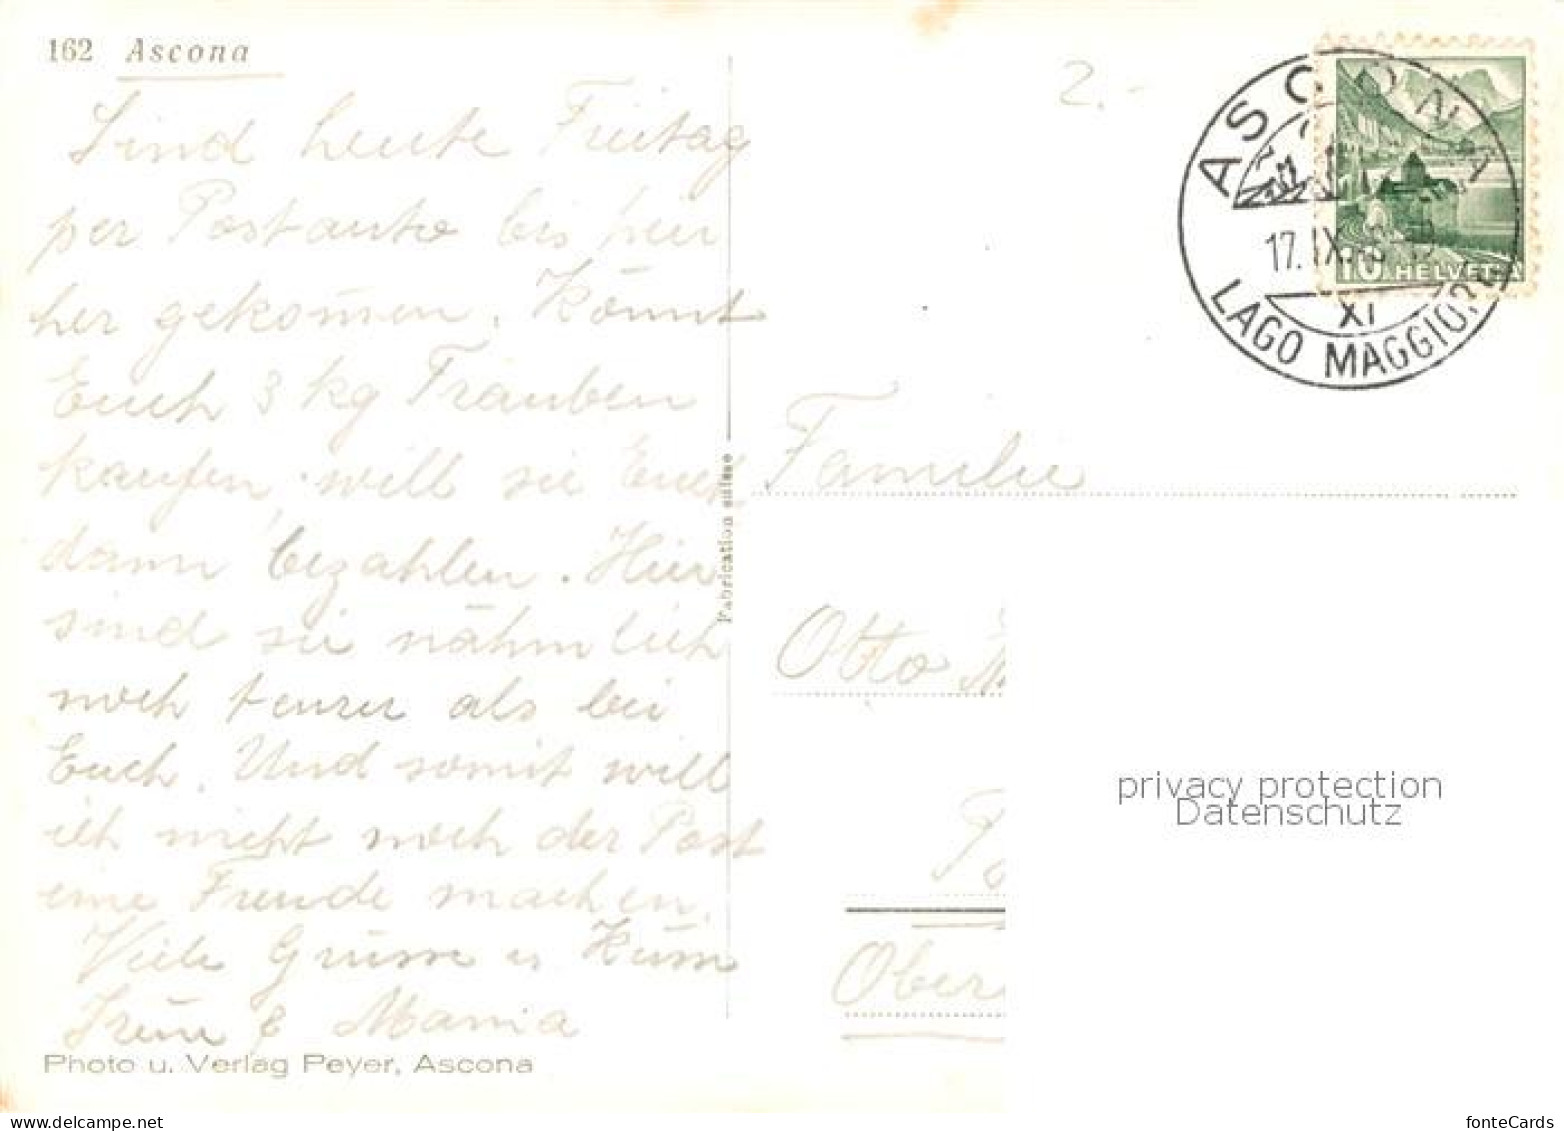 162 Ascona
Sind heute Freitag
per Postauto bis hier
her gekommen. Könnt
Euch 3 kg Trauben
kaufen, will sie Euch
dann bezahlen. Hier
sind sie nähmlich
noch teurer als bei
Euch. Und somit will
ich nicht noch der Post
eine Freude machen.
Viele Grüsse u.
& Mama
Photo u. Verlag Peyer, Ascona
Fabrication suisse
2.-
ASCONA
17. IX.
XI
LAGO MAGGIORE
10 HELVETIA
Familie
Otto
Ober
privacy protection
Datenschutz
fonteCards